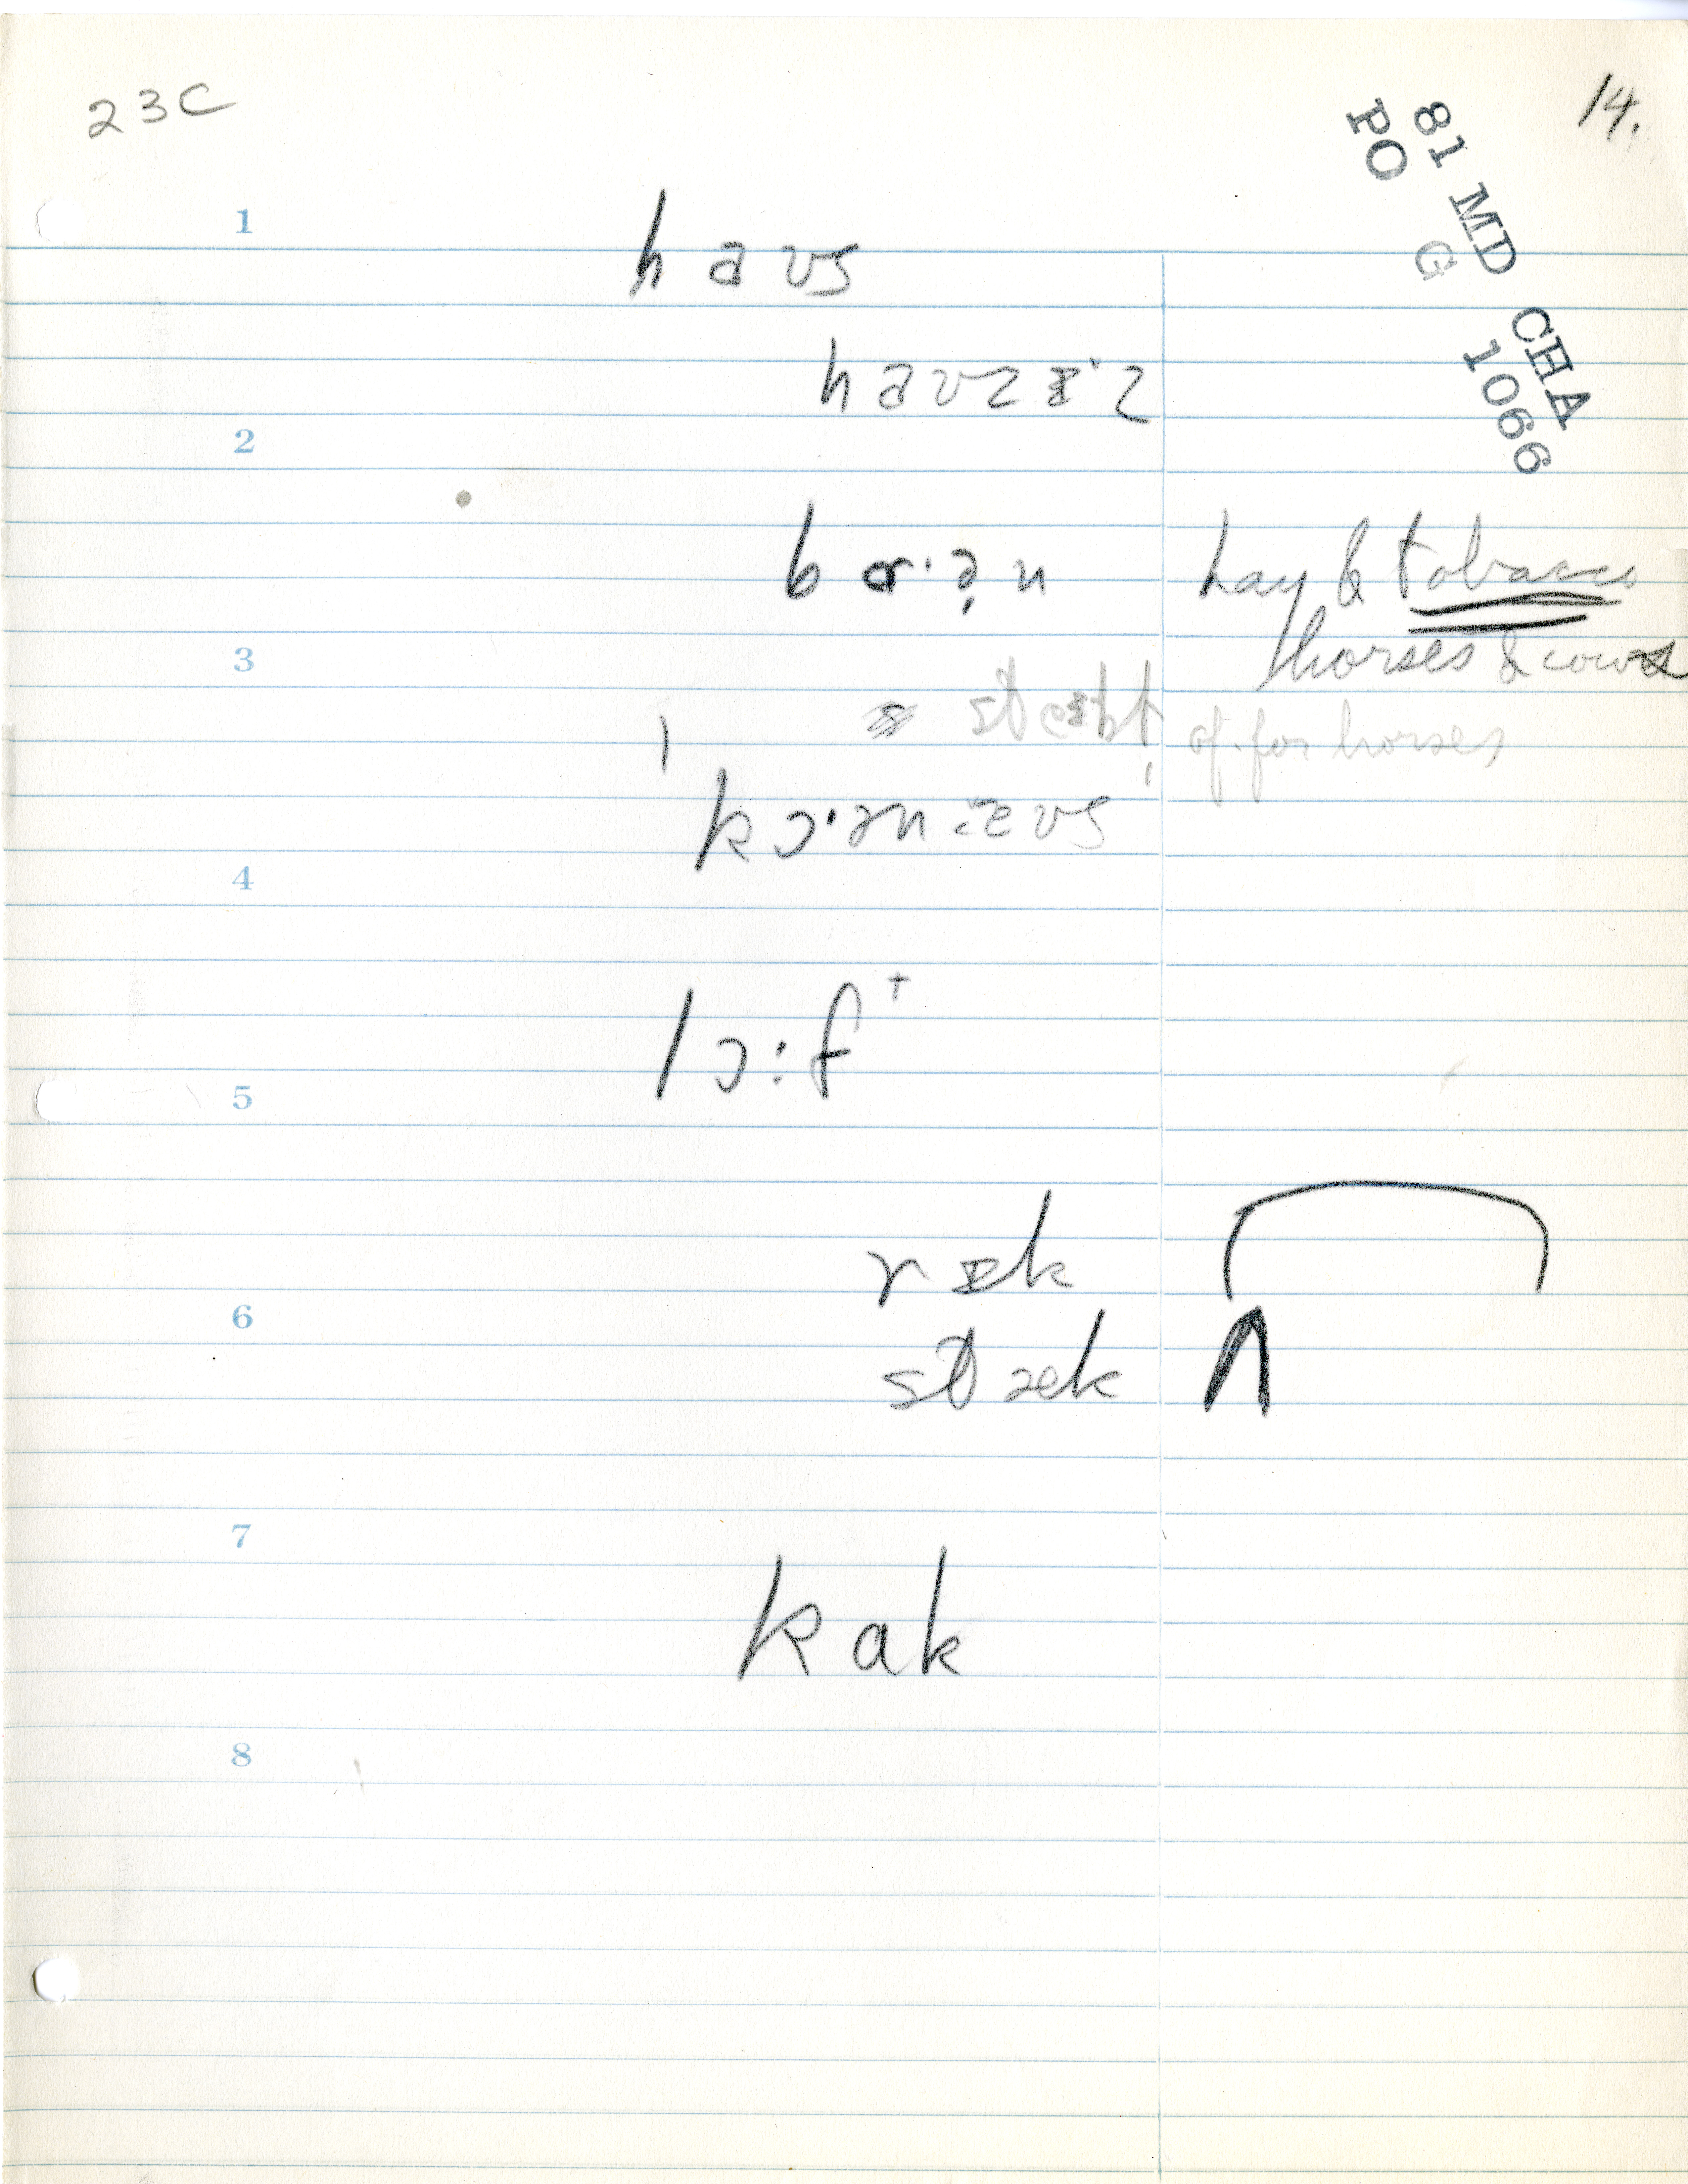 23C
14.
81 MD CHA
PO G 1066
1
haʊs
haʊzɪ·z
2
bɑ·ə̣n hay & tobacco
horses & cows
3
of. for horses
kɔ·ənæʊs
4
lɔ:f⁺
5
rɪk
6
stæk
7
kak
8